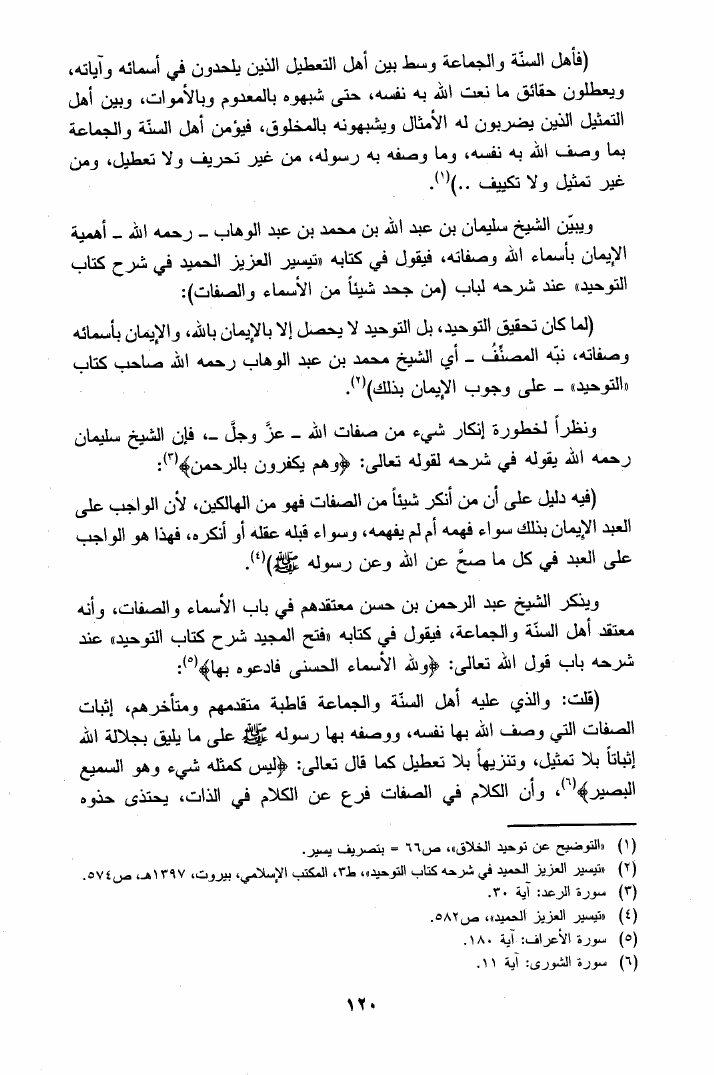 (فأهل السنّة والجماعة وسط بين أهل التعطيل الذين يلحدون في أسمائه وآياته،
ويعطلون حقائق ما نعت الله به نفسه، حتى شبهوه بالمعدوم وبالأموات، وبين أهل
التمثيل الذين يضربون له الأمثال ويشبهونه بالمخلوق، فيؤمن أهل السنّة والجماعة
بما وصف الله به نفسه، وما وصفه به رسوله، من غير تحريف ولا تعطيل، ومن
غير تمثيل ولا تكييف ..)(١).
ويبيّن الشيخ سليمان بن عبد الله بن محمد بن عبد الوهاب ـ رحمه الله ـ أهمية
الإيمان بأسماء الله وصفاته، فيقول في كتابه «تيسير العزيز الحميد في شرح كتاب
التوحيد» عند شرحه لباب (من جحد شيئاً من الأسماء والصفات):
(لما كان تحقيق التوحيد، بل التوحيد لا يحصل إلا بالإيمان بالله، والإيمان بأسمائه
وصفاته، نبّه المصنِّفُ ـ أي الشيخ محمد بن عبد الوهاب رحمه الله صاحب كتاب
«التوحيد» ـ على وجوب الإيمان بذلك)(٢).
ونظراً لخطورة إنكار شيء من صفات الله ـ عزَّ وجلَّ ـ، فإن الشيخ سليمان
رحمه الله يقوله في شرحه لقوله تعالى: ﴿وهم يكفرون بالرحمن﴾(٣):
(فيه دليل على أن من أنكر شيئاً من الصفات فهو من الهالكين، لأن الواجب على
العبد الإيمان بذلك سواء فهمه أم لم يفهمه، وسواء قبله عقله أو أنكره، فهذا هو الواجب
على العبد في كل ما صحَّ عن الله وعن رسوله ﷺ)(٤).
ويذكر الشيخ عبد الرحمن بن حسن معتقدهم في باب الأسماء والصفات، وأنه
معتقد أهل السنّة والجماعة، فيقول في كتابه «فتح المجيد شرح كتاب التوحيد» عند
شرحه باب قول الله تعالى: ﴿ولله الأسماء الحسنى فادعوه بها﴾(٥):
(قلت: والذي عليه أهل السنّة والجماعة قاطبة متقدمهم ومتأخرهم، إثبات
الصفات التي وصف الله بها نفسه، ووصفه بها رسوله ﷺ على ما يليق بجلالة الله
إثباتاً بلا تمثيل، وتنزيهاً بلا تعطيل كما قال تعالى: ﴿ليس كمثله شيء وهو السميع
البصير﴾(٦)، وأن الكلام في الصفات فرع عن الكلام في الذات، يحتذى حذوه
(١) «التوضيح عن توحيد الخلاق»، ص٦٦ = بتصريف يسير.
(٢) «تيسير العزيز الحميد في شرحه كتاب التوحيد»، ط٣، المكتب الإسلامي، بيروت، ١٣٩٧هـ، ص٥٧٤.
(٣) سورة الرعد: آية ٣٠.
(٤) «تيسير العزيز الحميد»، ص٥٨٢.
(٥) سورة الأعراف: آية ١٨٠.
(٦) سورة الشورى: آية ١١.
١٢٠